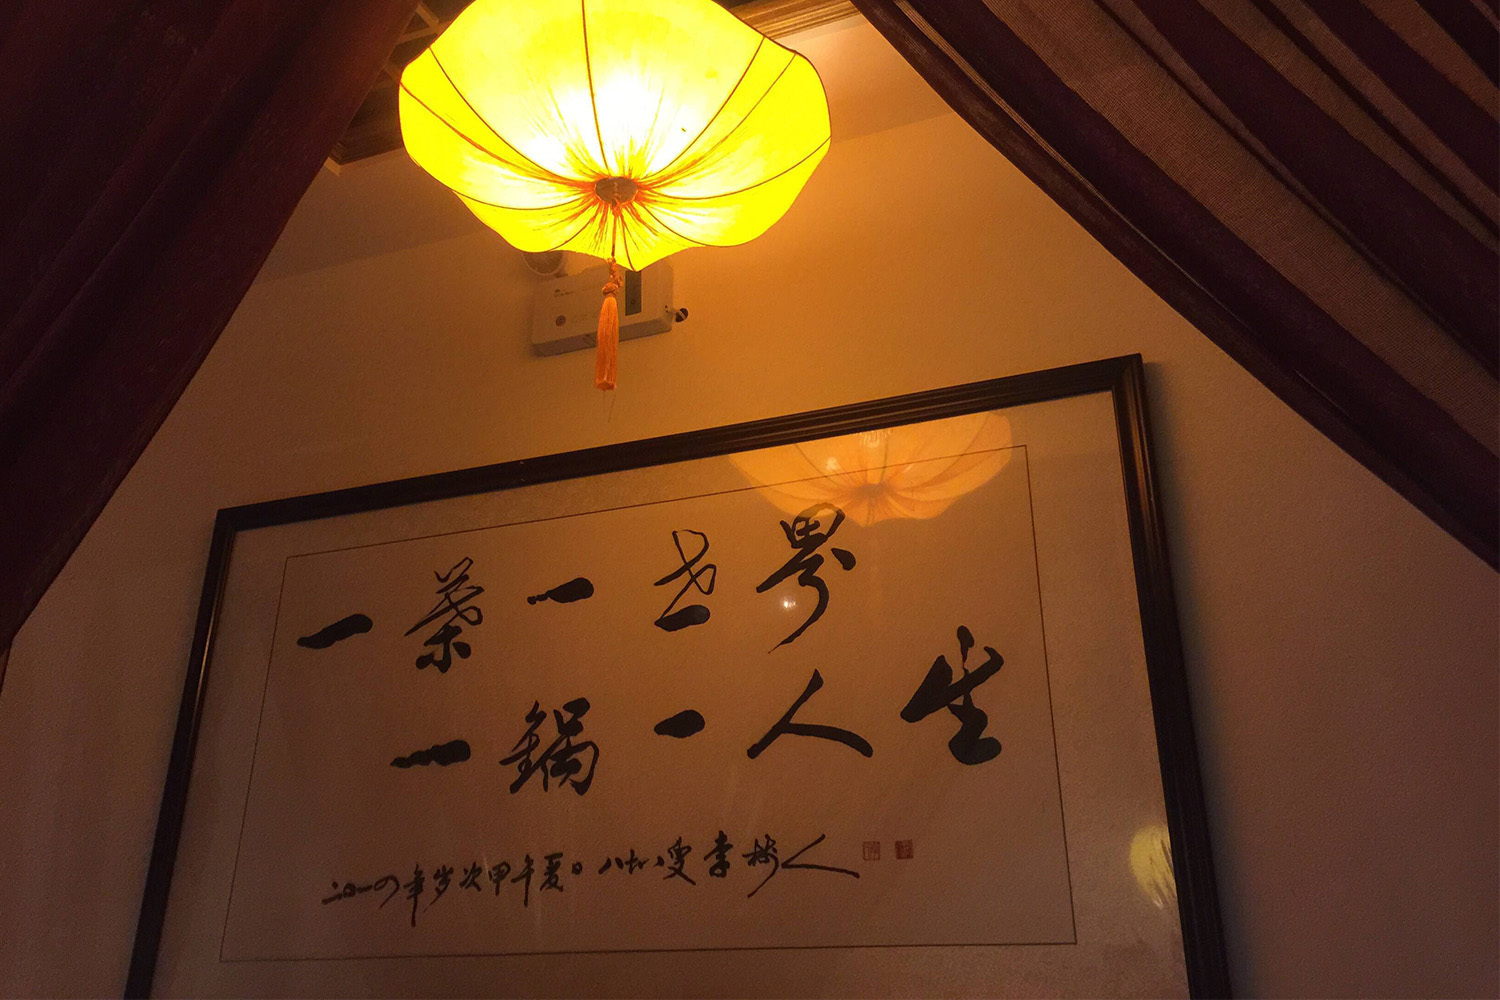 一葉一世界
一鍋一人生
二〇一四年岁次甲午夏日 叟李树人